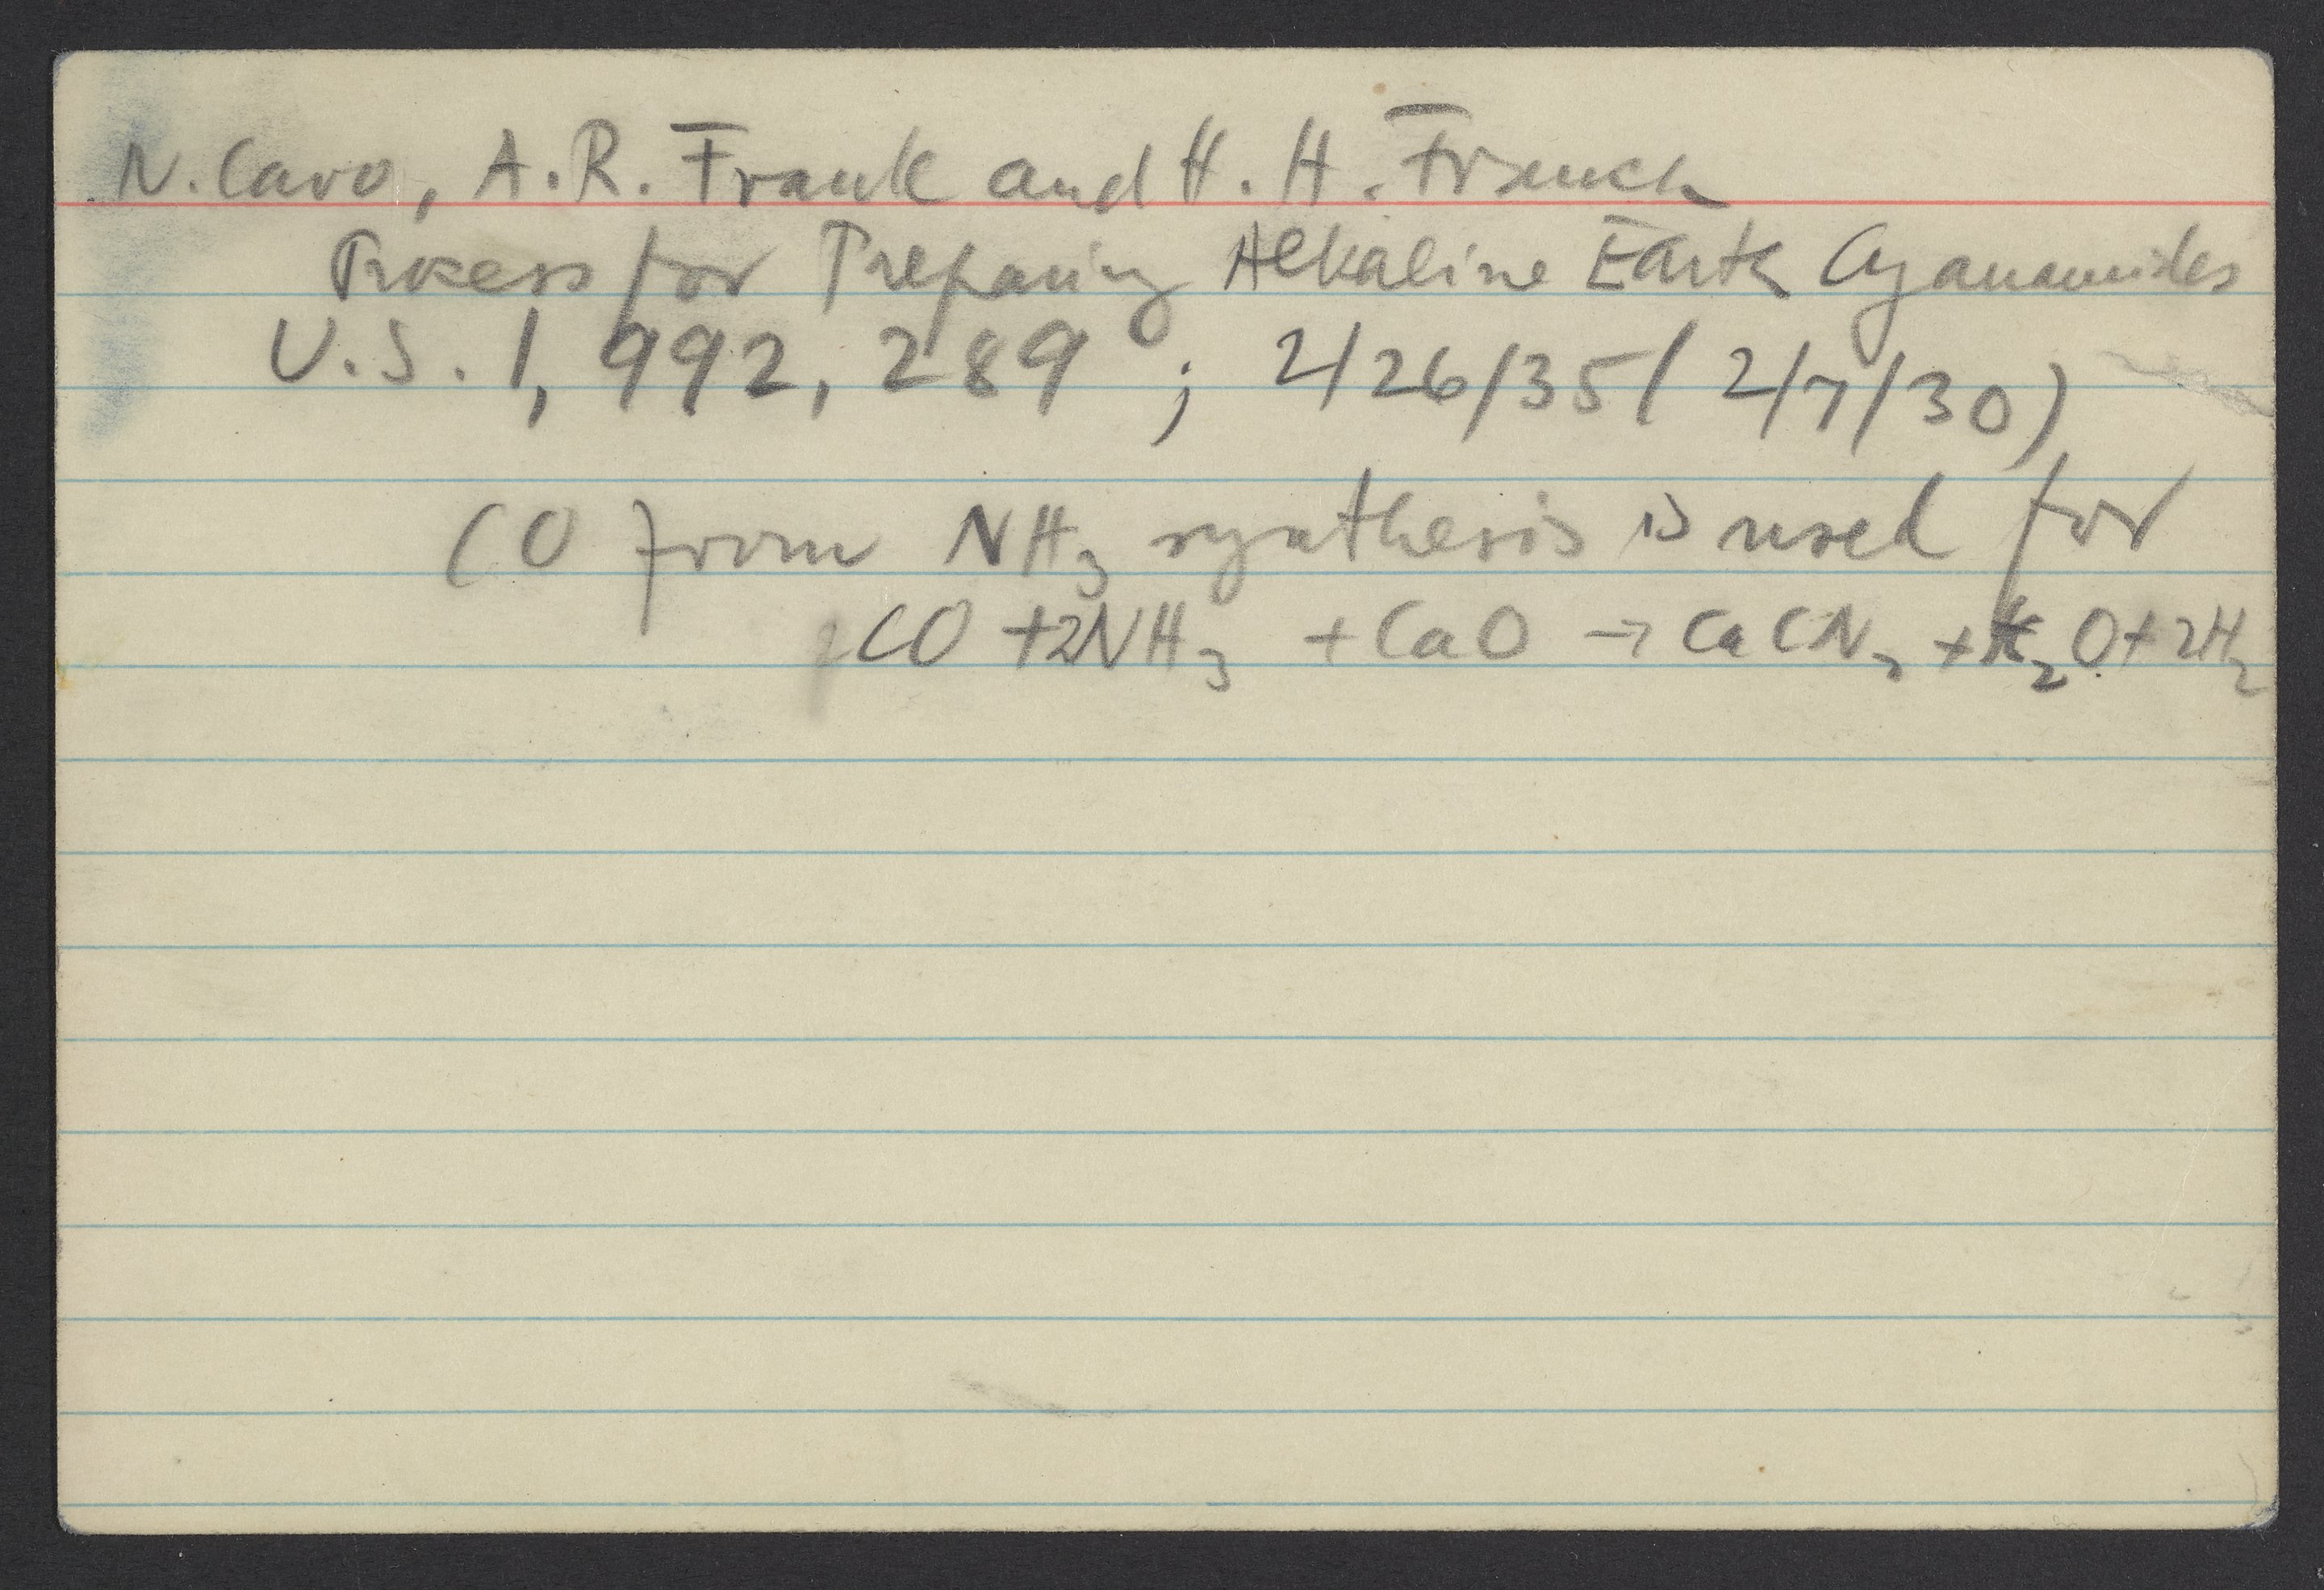 N. Caro, A. R. Frank and H. H. Franck
Process for Preparing Alkaline Earth Cyanamides
U.S. 1,992,289 ; 2/26/35 (2/7/30)
CO from NH3 synthesis is used for
CO + 2NH3 + CaO → CaCN2 + H2O + 2H2